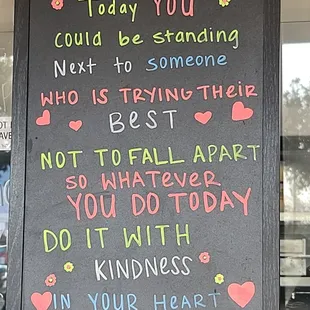 Today YOU
could be standing
Next to someone
WHO IS TRYING THEIR
BEST
NOT TO FALL APART
SO WHATEVER
YOU DO TODAY
DO IT WITH
KINDNESS
IN YOUR HEART